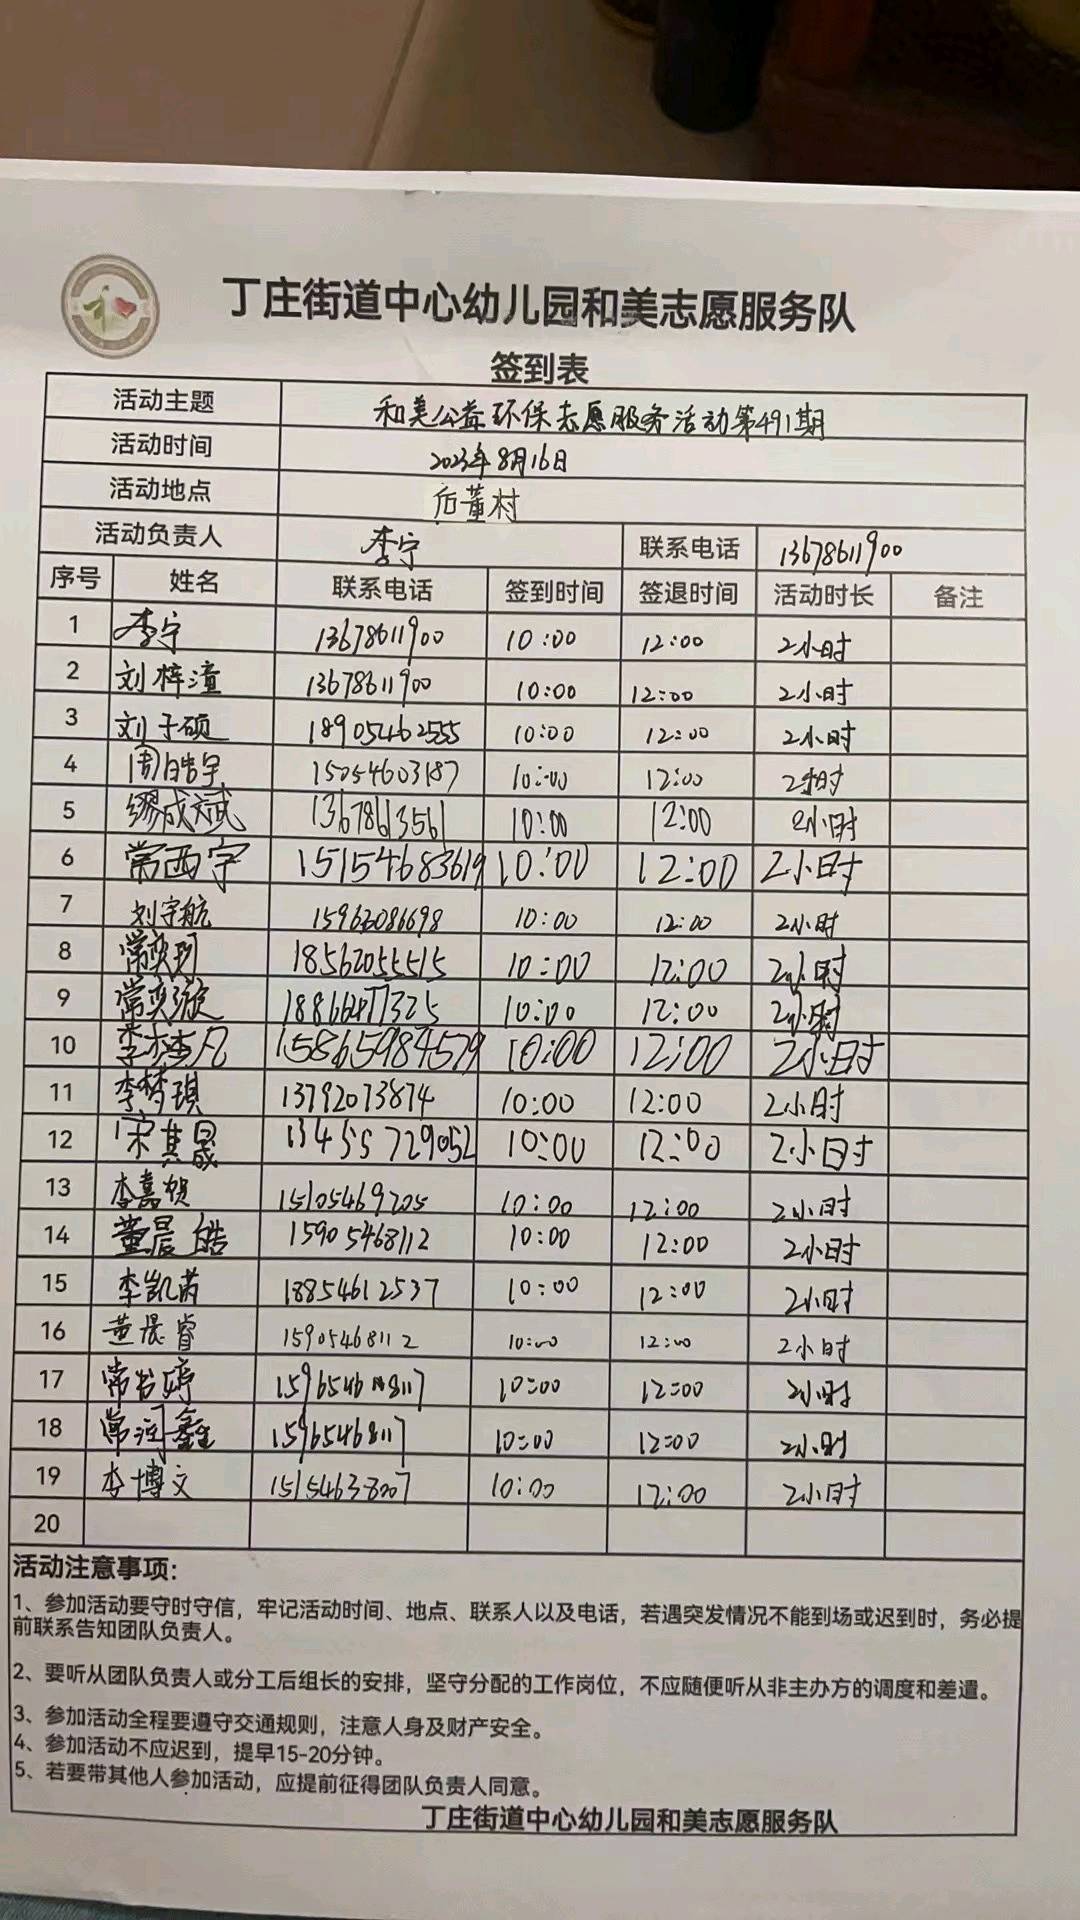 丁庄街道中心幼儿园和美志愿服务队
签到表
活动主题 和美公益环保志愿服务活动第491期
活动时间 2023年8月16日
活动地点 后董村
活动负责人 李宁 联系电话 13678611900
序号 姓名 联系电话 签到时间 签退时间 活动时长 备注
1 李宁 13678611900 10:00 12:00 2小时
2 刘梓潼 13678611900 10:00 12:00 2小时
3 刘子硕 18905462555 10:00 12:00 2小时
4 周皓宇 15054603187 10:00 12:00 2小时
5 缪成斌 13678613561 10:00 12:00 2小时
6 常西宇 15154683619 10:00 12:00 2小时
7 刘宇航 15962086698 10:00 12:00 2小时
8 常奕玥 18562055515 10:00 12:00 2小时
9 常奕漩 10:00 12:00 2小时
10 15865984579 10:00 12:00 2小时
11 李梦琪 13792073874 10:00 12:00 2小时
12 宋其晟 13455729052 10:00 12:00 2小时
13 李嘉贺 15105469205 10:00 12:00 2小时
14 董晨皓 15905468112 10:00 12:00 2小时
15 李凯芮 18854612537 10:00 12:00 2小时
16 董晨睿 15905468112 10:00 12:00 2小时
17 10:00 12:00 2小时
18 常润鑫 15965468117 10:00 12:00 2小时
19 李博文 15154638007 10:00 12:00 2小时
20
活动注意事项:
1、参加活动要守时守信，牢记活动时间、地点、联系人以及电话，若遇突发情况不能到场或迟到时，务必提
前联系告知团队负责人。
2、要听从团队负责人或分工后组长的安排，坚守分配的工作岗位，不应随便听从非主办方的调度和差遣。
3、参加活动全程要遵守交通规则，注意人身及财产安全。
4、参加活动不应迟到，提早15-20分钟。
5、若要带其他人参加活动，应提前征得团队负责人同意。
丁庄街道中心幼儿园和美志愿服务队